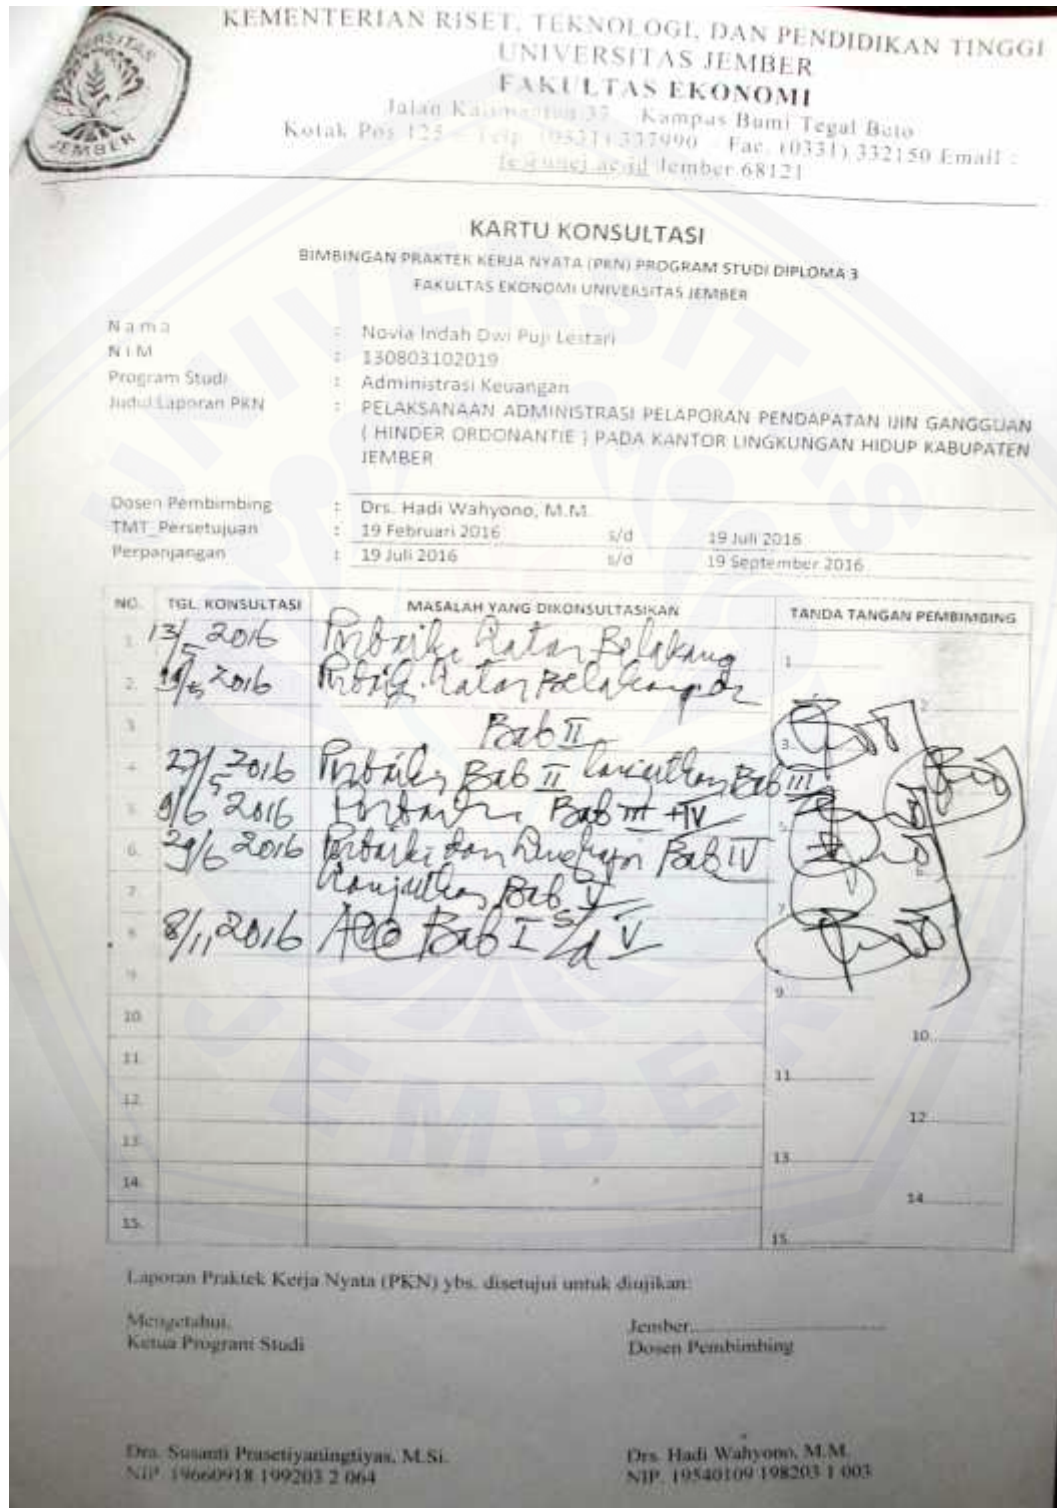 KEMENTERIAN RISET, TEKNOLOGI, DAN PENDIDIKAN TINGGI
UNIVERSITAS JEMBER
FAKULTAS EKONOMI
Jalan Kalimantan 37 Kampus Bumi Tegal Boto
Kotak Pos 125 - Telp. (0331) 337990 - Fac. (0331) 332150 Email :
fe@unej.ac.id Jember 68121
JEMBER
KARTU KONSULTASI
BIMBINGAN PRAKTEK KERJA NYATA (PKN) PROGRAM STUDI DIPLOMA 3
FAKULTAS EKONOMI UNIVERSITAS JEMBER
Nama : Novia Indah Dwi Puji Lestari
NIM : 130803102019
Program Studi : Administrasi Keuangan
Judul Laporan PKN : PELAKSANAAN ADMINISTRASI PELAPORAN PENDAPATAN IJIN GANGGUAN
( HINDER ORDONANTIE ) PADA KANTOR LINGKUNGAN HIDUP KABUPATEN
JEMBER
Dosen Pembimbing : Drs. Hadi Wahyono, M.M.
TMT_Persetujuan : 19 Februari 2016 s/d 19 Juli 2016
Perpanjangan : 19 Juli 2016 s/d 19 September 2016
NO. TGL. KONSULTASI MASALAH YANG DIKONSULTASIKAN TANDA TANGAN PEMBIMBING
1. 13/5 2016 Perbaiki Latar Belakang 1
2. 2016 Perbaiki Latar Belakang 2
3. Bab II 3.
4. 27/5 2016 Perbaiki Bab II lanjutkan Bab III
5. 9/6 2016 Perbaiki Bab III + IV 5
6. 29/6 2016 Perbaiki dan Bab IV
7. Lanjutkan Bab V 7
8. 8/11 2016 Acc Bab I s/d V
9. 9
10. 10
11. 11
12. 12
13. 13
14. 14
15. 15
Laporan Praktek Kerja Nyata (PKN) ybs. disetujui untuk diujikan:
Mengetahui, Jember
Ketua Program Studi Dosen Pembimbing
Dra. Susanti Prasetiyaningtiyas, M.Si. Drs. Hadi Wahyono, M.M.
NIP. 19660918 199203 2 064 NIP. 19540109 198203 1 003
UNIVERSITAS
JEMBER